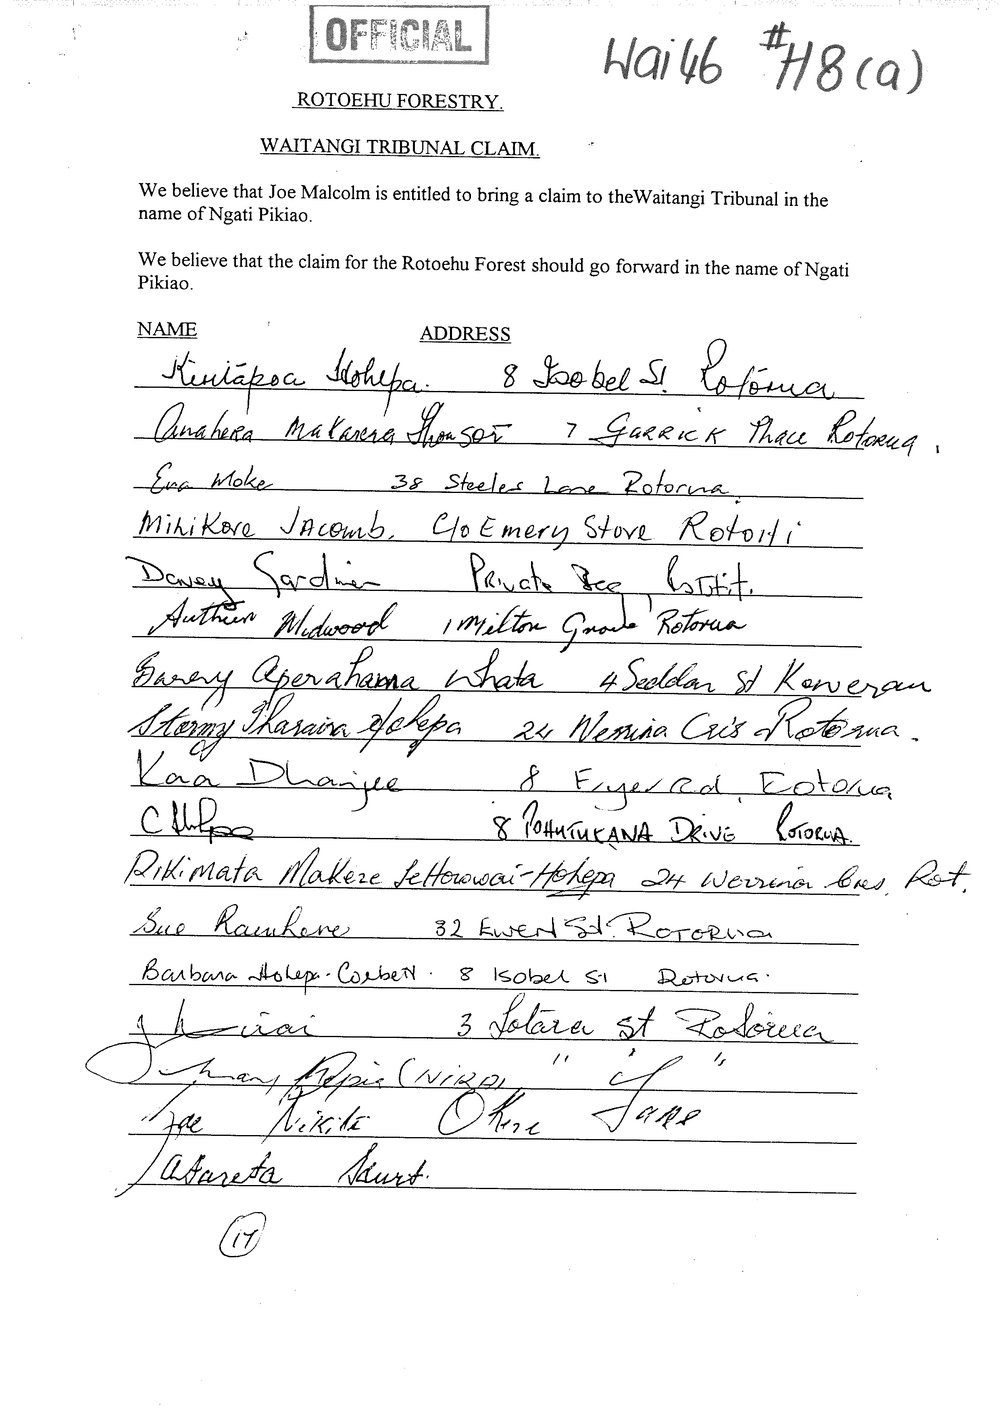 OFFICIAL
Wai 46 #H8(a)
ROTOEHU FORESTRY.
WAITANGI TRIBUNAL CLAIM.
We believe that Joe Malcolm is entitled to bring a claim to theWaitangi Tribunal in the
name of Ngati Pikiao.
We believe that the claim for the Rotoehu Forest should go forward in the name of Ngati
Pikiao.
NAME ADDRESS
Hohepa. 8 Isobel St. Rotorua
Anahera Makarena 7 GARRICK Place Rotorua
Eva Moke 38 Steeles Lane Rotorua.
Mihikore JAcomb. C/o Emery Store Rotoiti
Davey Gardiner Private Bag, Rotoiti.
Midwood 1 Milton Grove Rotorua
Aperahama Whata 4 Seddon St Kawerau
Stormy Hohepa 24 Rotorua.
Kara Dhanjee 8 Fryer Rd, Rotorua
C 8 POHUTUKAWA DRIVE ROTORUA.
Rikimata Makere -Hohepa 24 Cres. Rot.
Sue 32 Ewert St. ROTORUA
Barbara Hohepa-Corbett. 8 Isobel St Rotorua.
3 St Rotorua
" " "
Joe Okere
Atareta
17